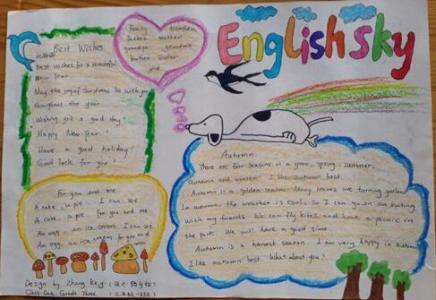 English sky
Best Wishes
Best wishes for a beautiful
New Year
May the joy of Christmas be with you
throughout the year
Wishing you a good day
Happy New Year!
Have a good holiday!
Good luck for you
family
father mother
grandpa grandma
brother sister
me
For you and me
A cake, a pie, I can see
A cake, a pie, for you and me
An egg, an ice cream, I can see
An egg, an ice cream, for you and me
Autumn
There are four seasons in a year, spring, summer,
autumn and winter. I like autumn best.
Autumn is a golden season. Many leaves are turning yellow.
In autumn, the weather is cool. So I can go an outing
with my friends. We can fly kites and have a picnic in
the park. We will have a good time.
Autumn is a harvest season. I am very happy in autumn.
I like autumn best. What about you?
Design by Zhang
Class One, Grade Three